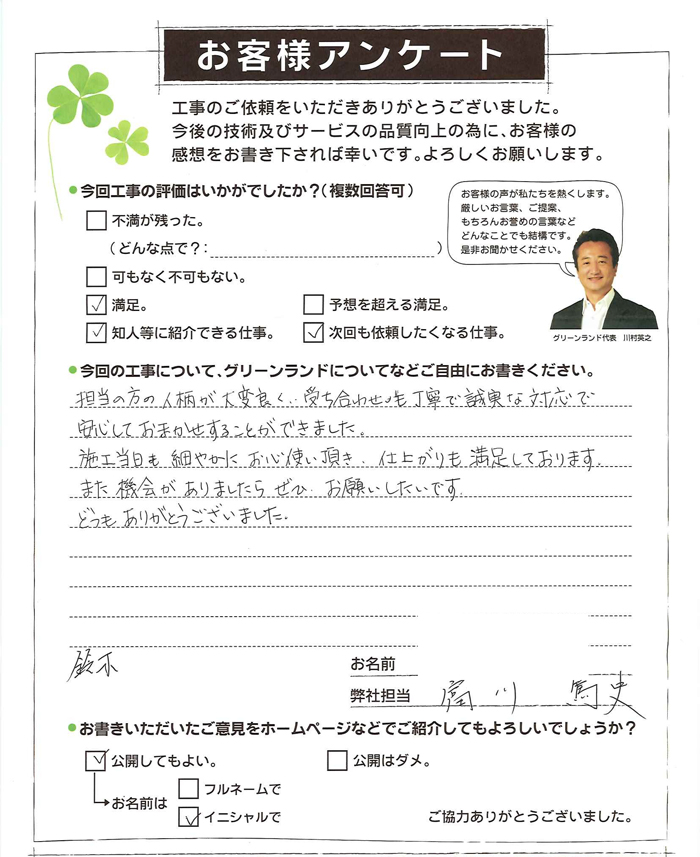 お客様アンケート
工事のご依頼をいただきありがとうございました。
今後の技術及びサービスの品質向上の為に、お客様の
感想をお書き下されば幸いです。よろしくお願いします。
今回工事の評価はいかがでしたか?(複数回答可)
不満が残った。
(どんな点で?: )
可もなく不可もない。
満足。
予想を超える満足。
知人等に紹介できる仕事。
次回も依頼したくなる仕事。
お客様の声が私たちを熱くします。
厳しいお言葉、ご提案、
もちろんお誉めの言葉など
どんなことでも結構です。
是非お聞かせください。
グリーンランド代表 川村英之
今回の工事について、グリーンランドについてなどご自由にお書きください。
担当の方の人柄が大変良く、受ち合わせも丁寧で誠実な対応で
安心しておまかせすることができました。
施工当日も細やかにお心使い頂き、仕上がりも満足しております。
また機会がありましたらぜひ、お願いしたいです。
どうもありがとうございました。
鈴木
お名前
弊社担当 富川 篤史
お書きいただいたご意見をホームページなどでご紹介してもよろしいでしょうか?
公開してもよい。
公開はダメ。
お名前は
フルネームで
イニシャルで
ご協力ありがとうございました。